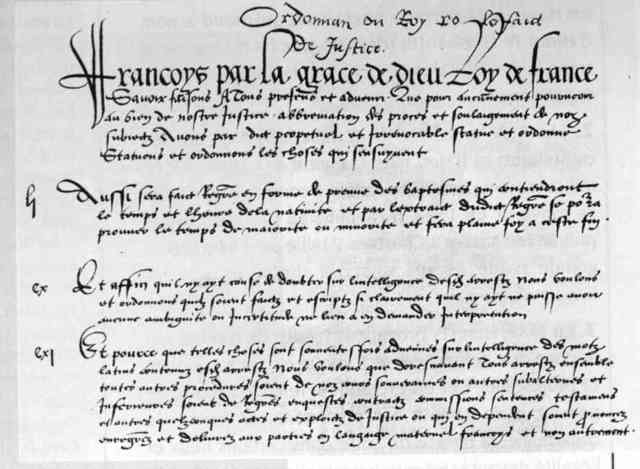 Ordonnan du Roy
De Justice
Francoys par la grace de dieu Roy de france
Savoir faisons A Tous presens et advenir Que pour aucunement pourveoir
au bien de nostre Justice abbreviation des proces et soulaigement de noz
subiectz Avons par dict perpetuel et Irrevocable statue et ordonne
Statuons et ordonnons les choses qui sensuyvent
lj Aussi sera faict Regre en forme de preuve des baptesmes qui contiendront
le temps et lheure dela nativite et par lextraict dudict Regre se pora
prouver le temps de maiorite ou minorite et fera plaine foy a ceste fin
cx Et affin quil ny ayt cause de doubter sur lintelligence desd arrestz Nous voulons
et ordonnons quilz soient faictz et escriptz si clairement quil ny ayt ne puisse avoir
aucune ambiguite ou Incertitude ne lieu a en demander Interpretation
cxj Et pource que telles choses sont souventesfois advenues sur lintelligence des motz
latins contenuz esd arrestz Nous voulons que doresnavant Tous arrestz ensemble
toutes autres procedures soient de noz cours souveraines ou autres subalternes et
Inferieures soient de Regres enquestes contractz commissions sentences testamens
et autres quelzconques actes et exploictz de Justice ou qui en dependent soient prononcez
enregrez et delivrez aux parties en langaige maternel francoys et non autrement